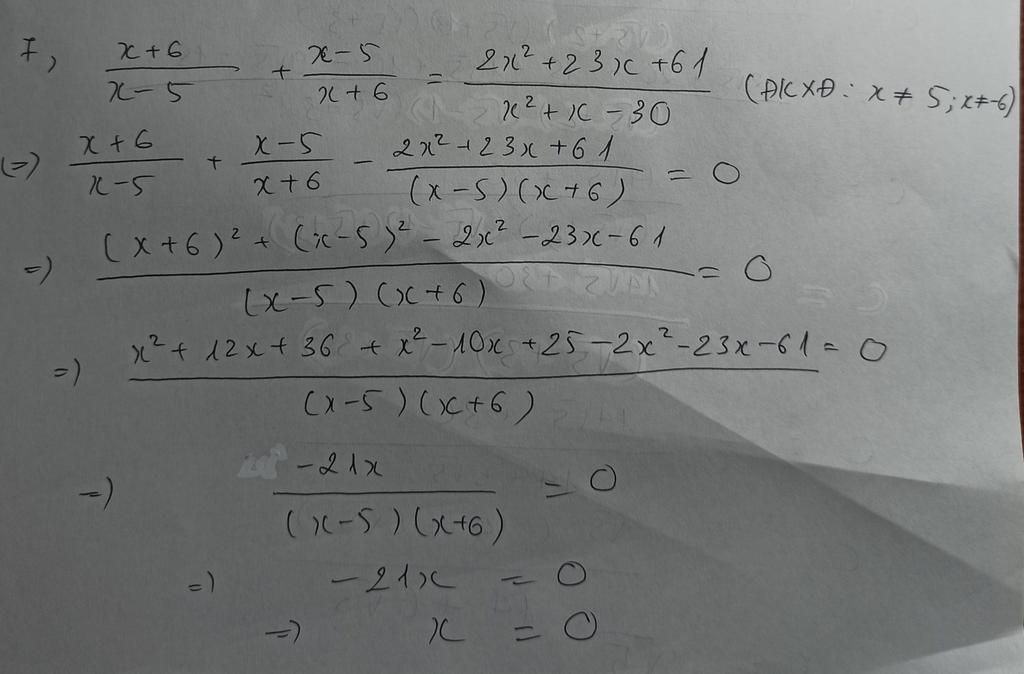 7, \frac{x+6}{x-5} + \frac{x-5}{x+6} = \frac{2x²+23x+61}{x²+x-30} (ĐKXĐ: x ≠ 5; x ≠ -6)
(=) \frac{x+6}{x-5} + \frac{x-5}{x+6} - \frac{2x²+23x+61}{(x-5)(x+6)} = 0
=) \frac{(x+6)² + (x-5)² - 2x² - 23x - 61}{(x-5)(x+6)} = 0
=) \frac{x² + 12x + 36 + x² - 10x + 25 - 2x² - 23x - 61}{(x-5)(x+6)} = 0
=) \frac{-21x}{(x-5)(x+6)} = 0
=) -21x = 0
=) x = 0